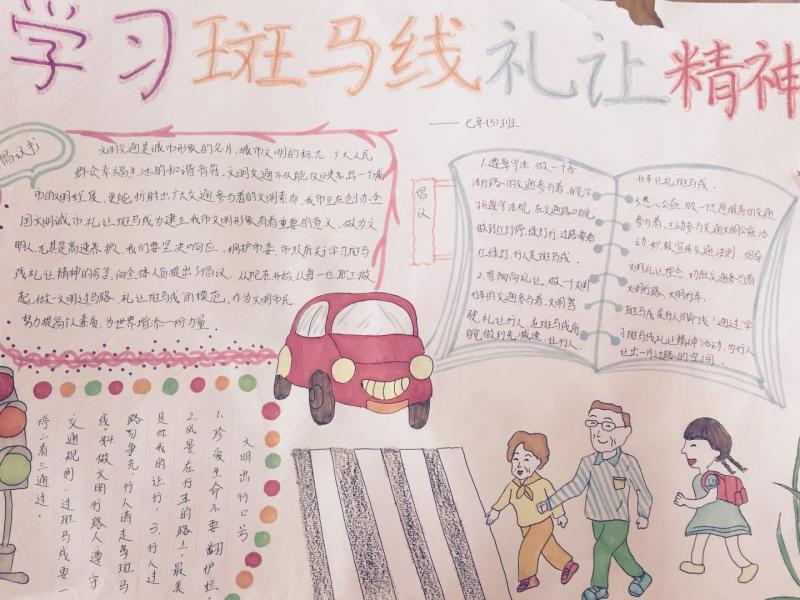 学习斑马线礼让精神
——七年(5)班
倡议书
文明交通是城市形象的名片,城市文明的标志,广大人民
群众幸福生活的和谐音符,文明交通不仅能反映出一个城
市的文明程度,更能折射出广大交通参与者的文明素质,我市正在创办全
国文明城市礼让斑马线为建立我市文明形象有着重要的意义,做为文
明人,尤其是高速养护人,我们要坚决响应,拥护市委、市政府关于学习斑马
线礼让精神的号召,向全体人员提出了倡议,从现在开始,从每一位职工做
起,做"文明过马路,礼让斑马线"的模范,作为文明市民,
努力提高个人素质,为世界增添一份力量。
倡议
1.遵章守法,做一个各
法行路的交通参与者,自觉学
习遵守法规,在交通路口自觉
做到红灯停,绿灯行,过路要看
红绿灯,行人走斑马线。
2.谦恭向礼让,做一个文明
行车的交通参与者,文明驾
驶,礼让行人,在斑马线前
自觉做到先减速,让行人,
机车让礼斑马线。
3.热心公益,做一忧愿服务的交通
参与者,主动参与交通文明公益活
动,积极宣传交通法则,倡导
文明礼让理念,切做交通参与者
文明行路,文明行车。
斑马线是行人的命线!通过"学
习斑马线礼让精神"活动,为行人
让出一片过路的空间。
文明出行口号
1.珍爱生命不要翻护栏。
2.风景在行车的路上,最美
是你我的让行!3.行人过
路勿争先,行人请走斑马
线。4.做文明行路人,遵守
交通规则,过斑马线要一
停二看三通过。